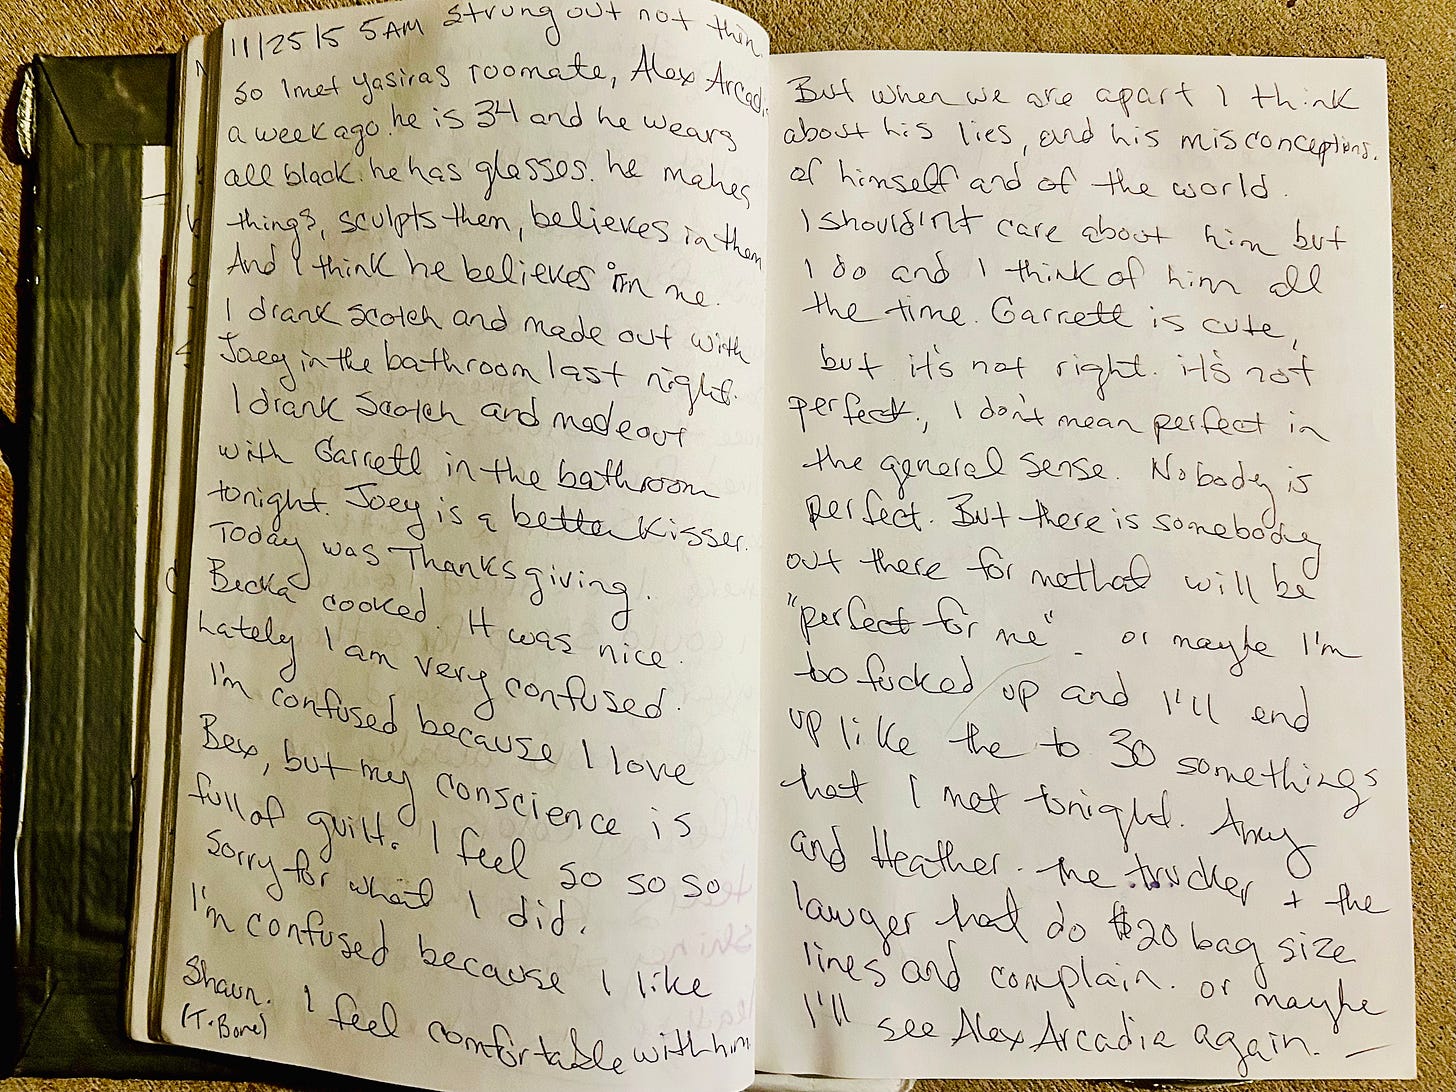 11/25/5 5AM Strung out not then
So I met yasiras roomate, Alex Arcadi
a week ago. he is 34 and he wears
all black. he has glasses. he makes
things, sculpts them, believes in them
And I think he believes in me.
I drank scotch and made out with
Joey in the bathroom last night.
I drank scotch and made out
with Garrett in the bathroom
tonight. Joey is a better kisser.
Today was Thanksgiving.
Becka cooked. It was nice.
Lately I am very confused.
I'm confused because I love
Bex, but my conscience is
full of guilt. I feel so so so
sorry for what I did.
I'm confused because I like
Shaun. I feel comfortable with him
(T-Bone)
But when we are apart I think
about his lies, and his misconceptions.
of himself and of the world.
I should'nt care about him but
I do and I think of him all
the time. Garrett is cute,
but it's not right. it's not
perfect, I don't mean perfect in
the general sense. Nobody is
perfect. But there is somebody
out there for me that will be
"perfect for me". or maybe I'm
to fucked up and I'll end
up like the to 30 somethings
that I met tonight. Amy
and Heather. the trucker + the
lawyer that do $20 bag size
lines and complain. or maybe
I'll see Alex Arcadia again. —